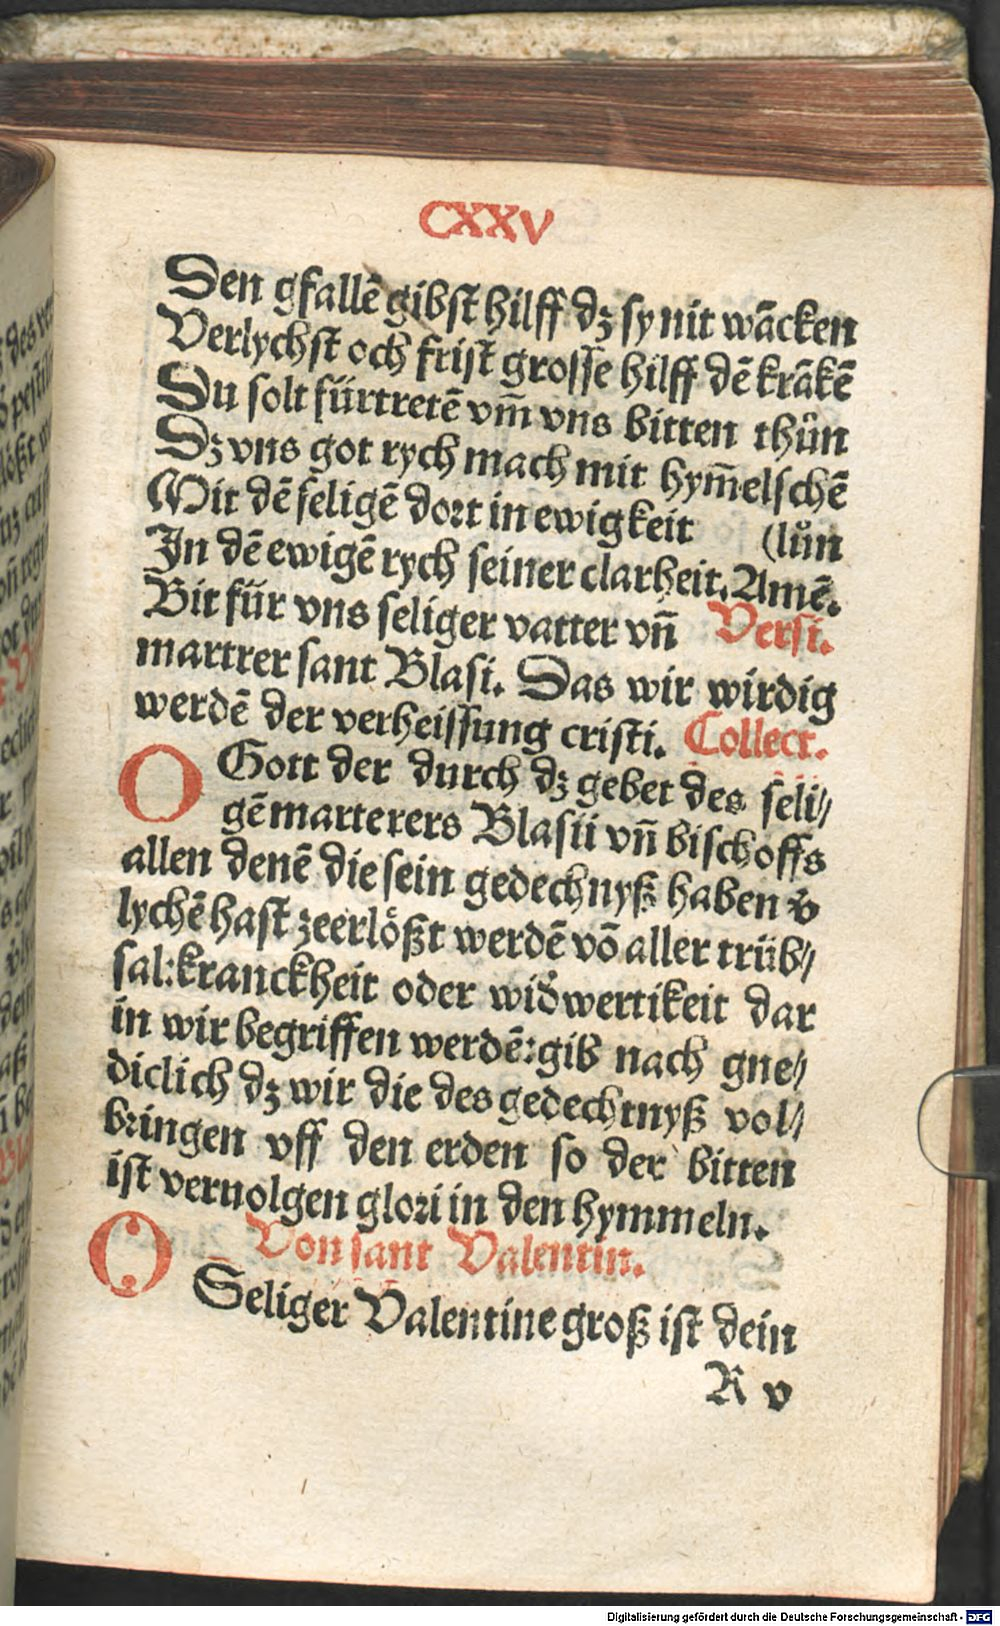 CXXV
Den gfallē gibst hilff dz sy nit wācken
Verlychst och frist grosse hilff dē krākē
Du solt fürtretē vm̄ vns bitten thůn
Dz vns got rych mach mit hym̄elschē
Mit dē seligē dort in ewigkeit (lůn
In dē ewigē rych seiner clarheit. Amē.
Bit für vns seliger vatter vn̄ Versi.
martrer sant Blasi. Das wir wirdig
werdē der verheissung cristi. Collect.
O Gott der durch dz gebet des seli⸗
gē marterers Blasii vn̄ bischoffs
allen denē die sein gedechnyß haben v̄
lychē hast zeerlößt werdē vō aller trüb⸗
sal: kranckheit oder wid̄wertikeit dar
in wir begriffen werdē: gib nach gne⸗
diclich dz wir die des gedechtnyß vol⸗
bringen vff den erden so der bitten
ist veruolgen glori in den hymmeln.
Von sant Valentin.
O Seliger Valentine groß ist dein
R v
des
pestil
Digitalisierung gefördert durch die Deutsche Forschungsgemeinschaft - DFG